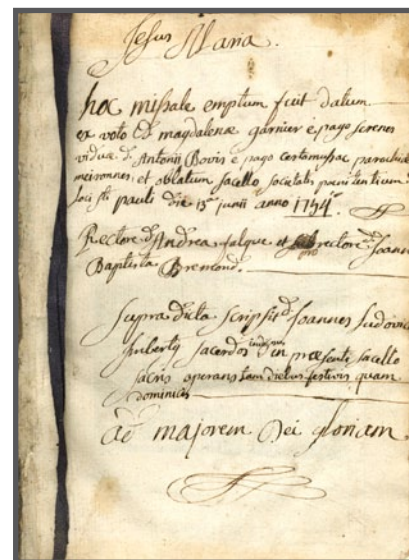 Jesus Maria.
hoc missale emptum fuit datum
ex voto D. magdalenæ garnier è pago serenes
viduæ d. Antonii Bovis è pago certamussac parochiæ
meironnes; et oblatum sacello societatis poenitentium
loci sti pauli die 15a junii anno 1754.
Rectore d. Andrea falque et rectore d. Joann
pro
Baptista Bremond.
supra dicta scripsit d. Joannes Ludovic
Imbertus sacerdos indignus in præsenti sacello
sacris operans tam diebus festivis quam
dominicis
ad majorem Dei gloriam